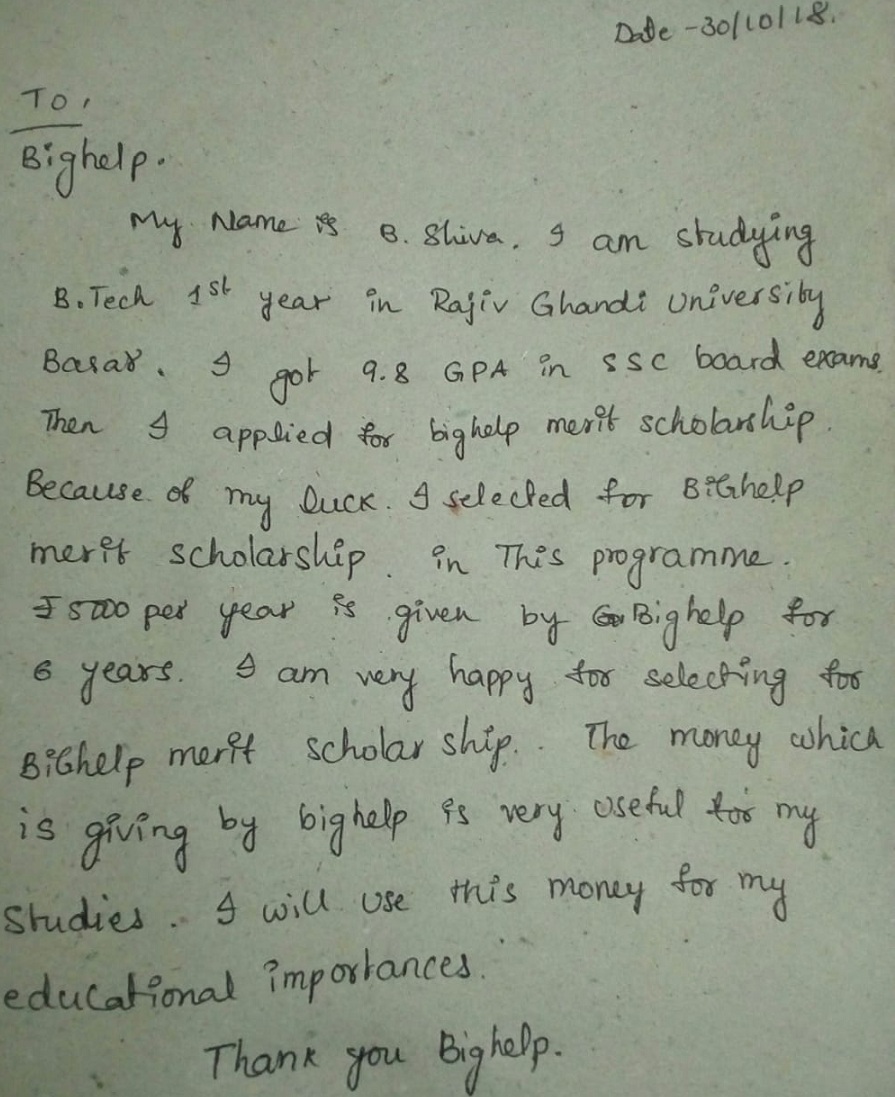 Date - 30/10/18.
To,
Bighelp.
My Name is B. Shiva. I am studying
B.Tech 1st year in Rajiv Ghandi University
Basar. I got 9.8 GPA in SSC board exams.
Then I applied for bighelp merit scholarship.
Because of my luck. I selected for BiGhelp
merit scholarship. in This programme.
₹5000 per year is given by Bighelp for
6 years. I am very happy for selecting for
BiGhelp merit scholar ship. The money which
is giving by bighelp is very useful for my
Studies. I will use this money for my
educational importances.
Thank you Bighelp.